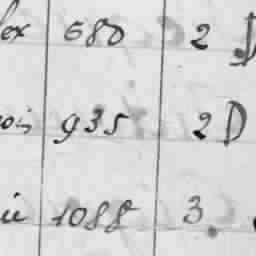 ex 680 2 D
ois 935 2 D
ie 1088 3.